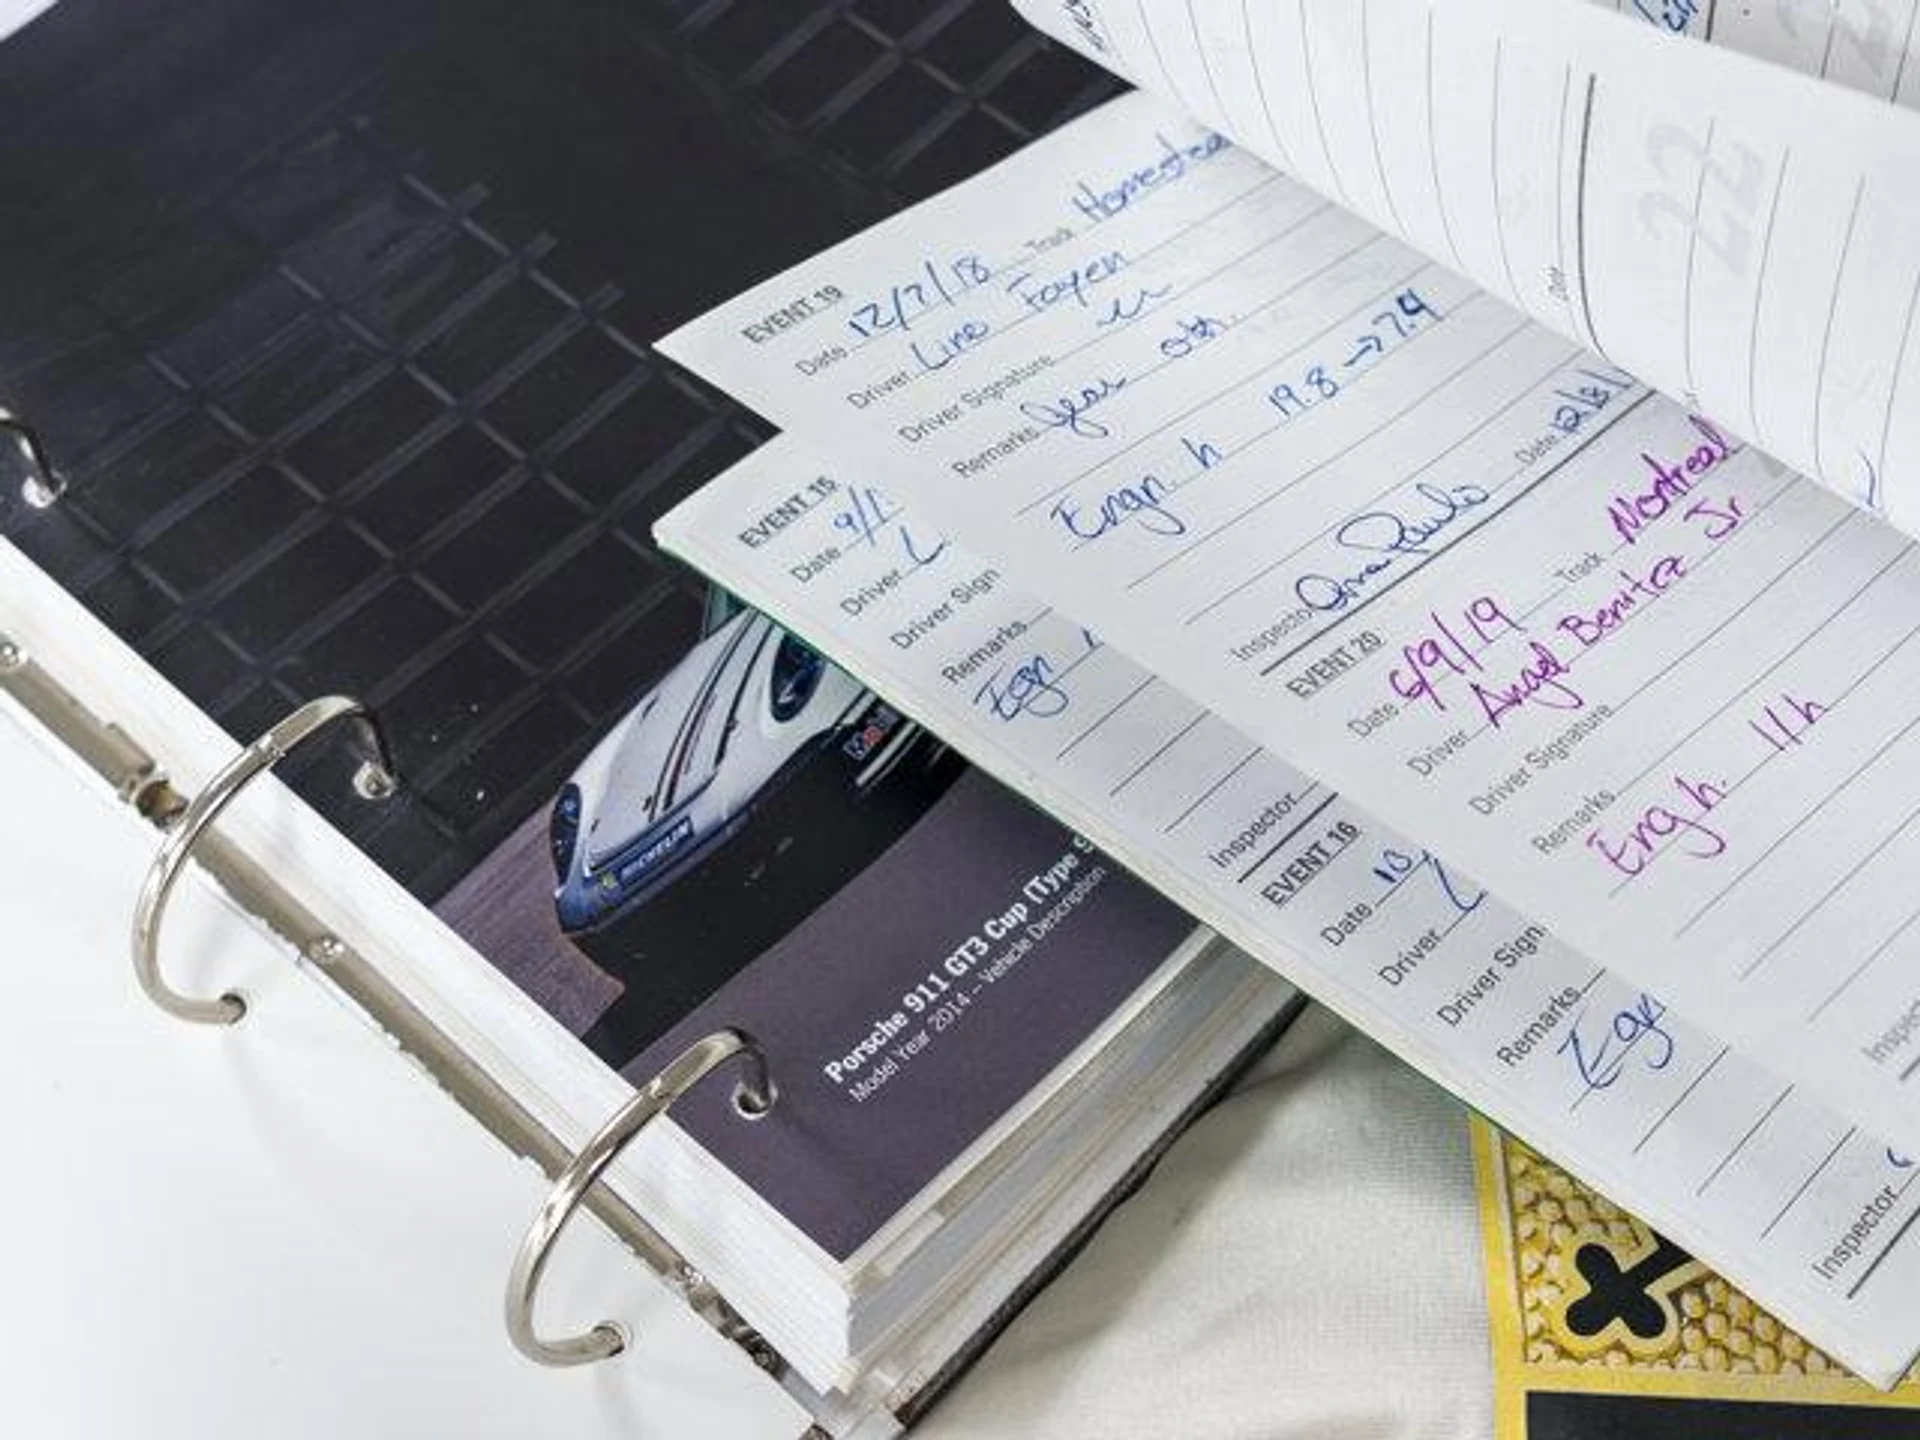 EVENT 19
Date 12/7/18 Track Homestea
Driver Line Fayen
Driver Signature
Remarks Gear
Engn. h 19.8 → 7.4
Inspecto Date 12/8/1
EVENT 20
Date 6/9/19 Track Montreal
Driver Angel Benitez Jr
Driver Signature
Remarks
Eng h. 11h
Inspec
EVENT 15
Date 9/1
Driver L
Driver Sign
Remarks
Egn
Inspector
EVENT 16
Date 10/
Driver L
Driver Sign.
Remarks
Egn
Inspector
22
Date
MICHELIN
Porsche 911 GT3 Cup (Type 9
Model Year 2014 – Vehicle Description